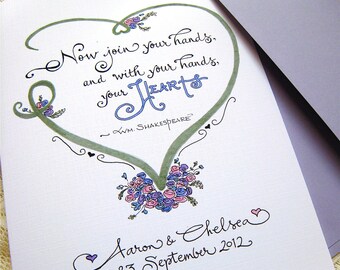 Now join your hands,
and with your hands,
your Hearts
~ Wm. Shakespeare
Aaron & Chelsea
September 2012